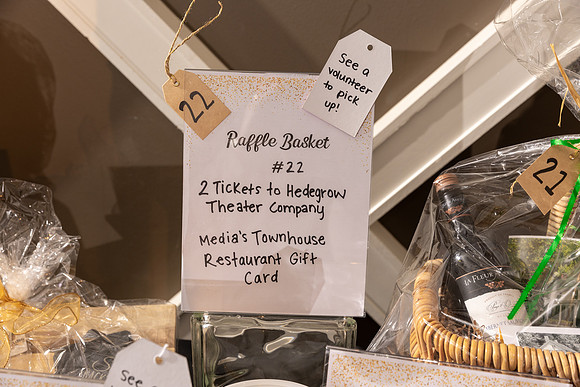 22
See a
volunteer
to pick
up!
Raffle Basket
#22
2 Tickets to Hedegrow
Theater Company
Media's Townhouse
Restaurant Gift
Card
21
LA FLEUR
See